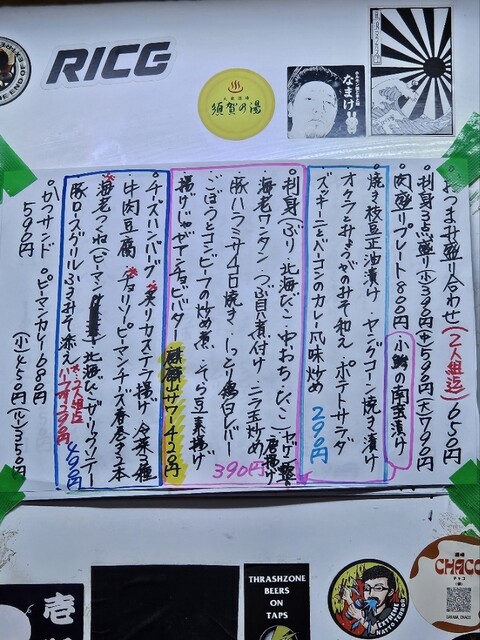 RICG
須賀の湯
なまけ
おつまみ盛り合わせ(2人組迄)650円
・刺身3点盛り(小)390円(中)590円(大)790円
・肉盛りプレート800円
小鯵の南蛮漬け
焼き枝豆正油漬け・ヤングコーン焼き漬け
オクラとみょうがのみそ和え・ポテトサラダ
ズッキーニとベーコンのカレー風味炒め 290円
刺身(ぶり・北海だこ・中おち・ひらご)
海老ワンタン・つぶ貝煮付け・ニラ玉炒め
豚ハラミサイコロ焼き・しっとり鶏白レバー
ごぼうとコンビーフの炒め煮・そら豆素揚げ
揚げじゃがアンチョビバター 390円
サワー420円
チーズハンバーグ・炙りカステラ揚げ・冷菜3種
牛肉豆腐・チョリソーピーマンチーズ春巻き2本
海老つくね(ピーマン
豚ロースグリルふきみそ添え 490円
*2人組迄
ハーフ290円
・カツサンド 590円
・ピーマンカレー 680円
(小)450円(ルー)350円
THRASHZONE
BEERS
ON
TAPS
EXTREME
NATTO TERROR
酒場
CHACO
チャコ
壱